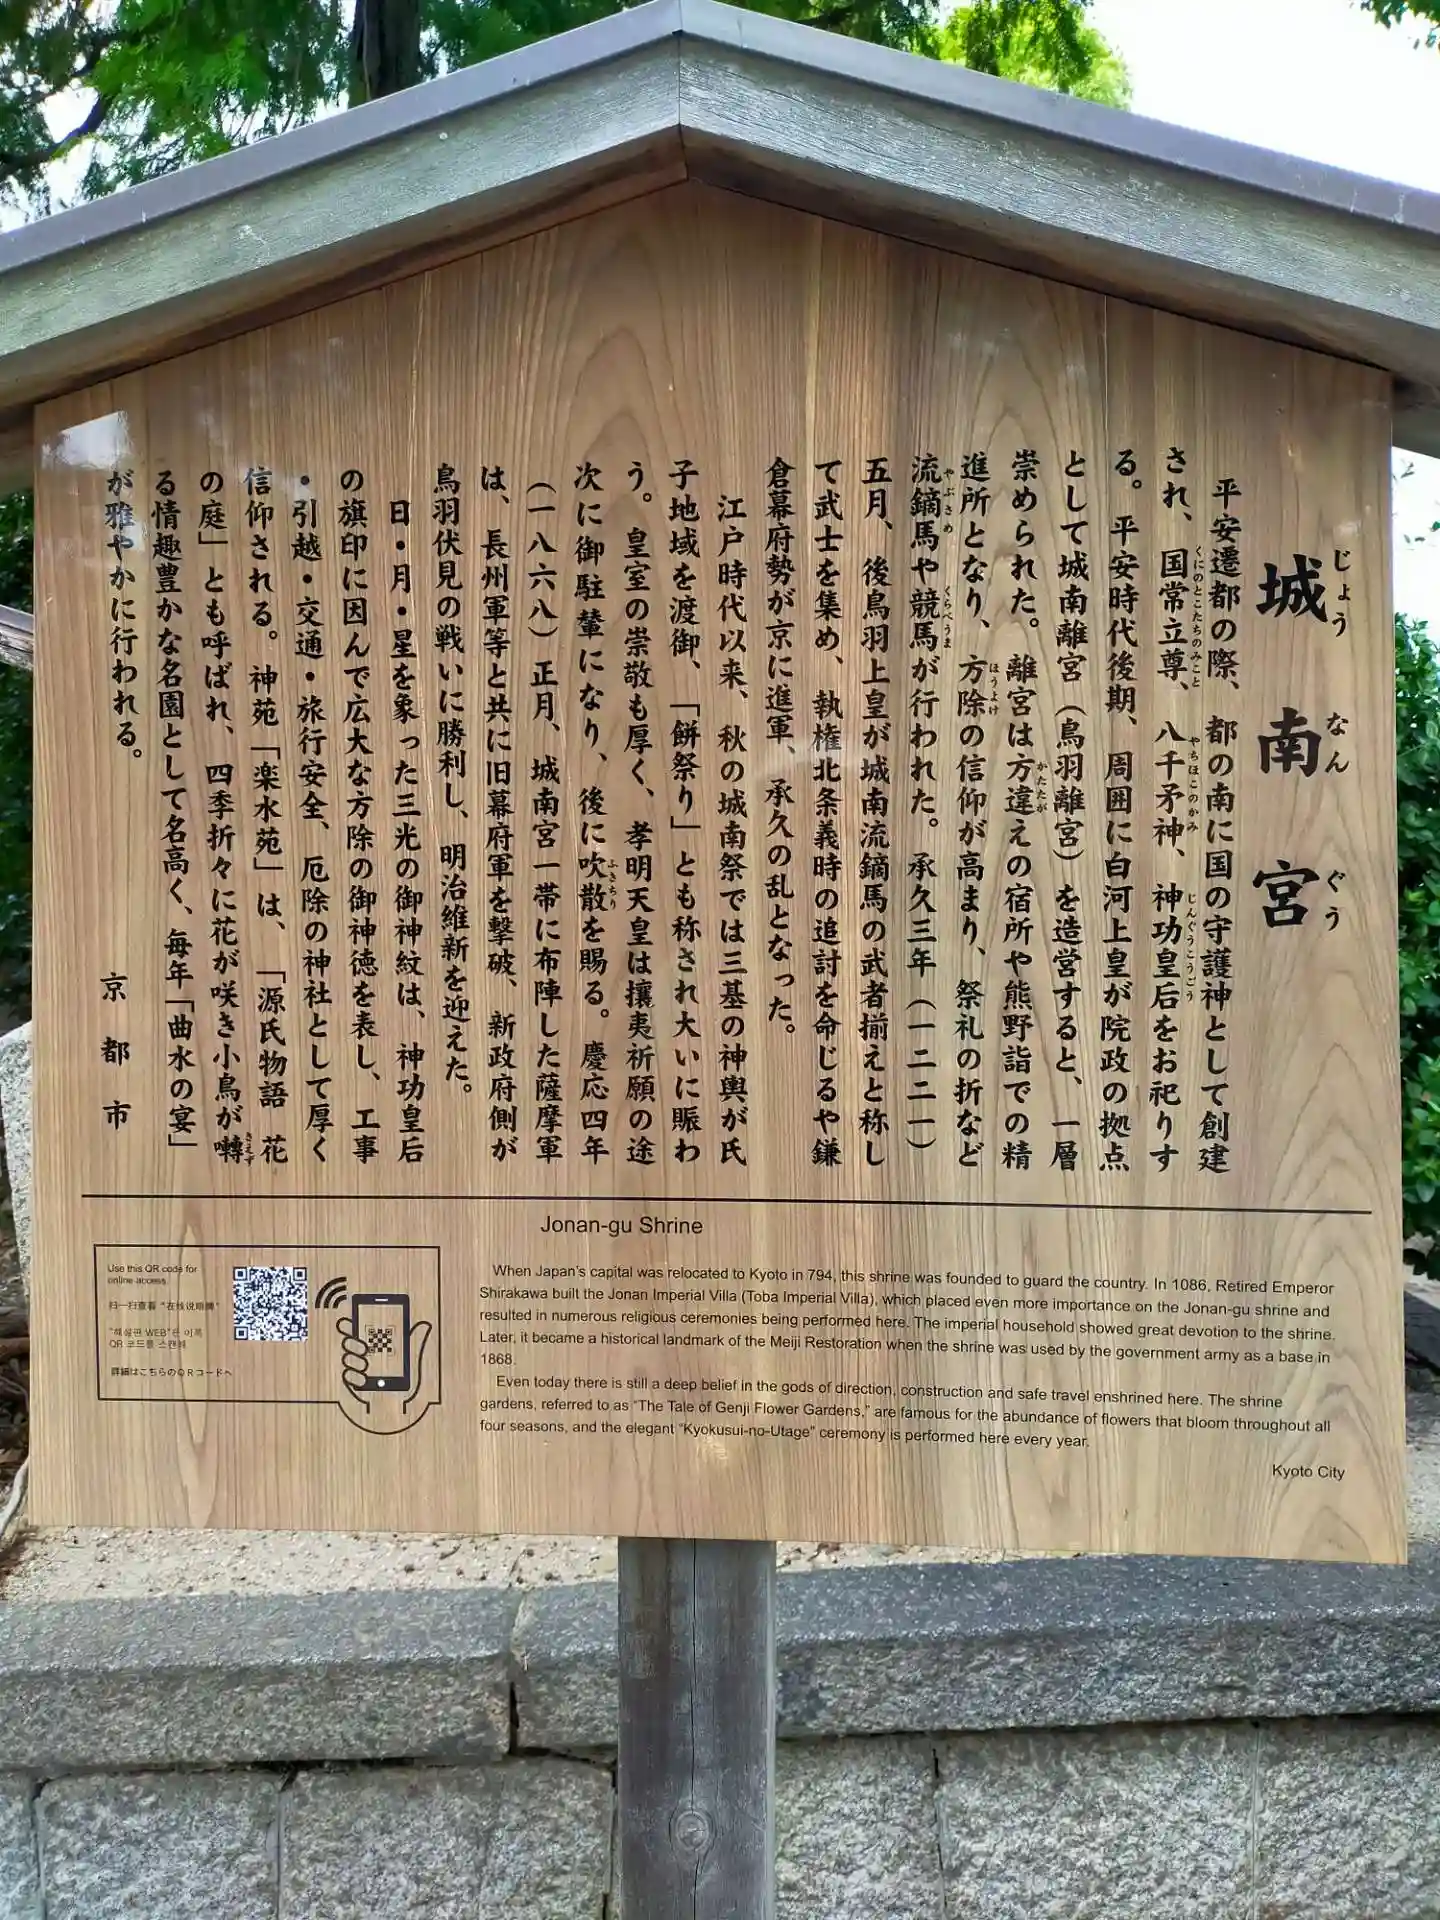 城南宮
じょうなんぐう
平安遷都の際、都の南に国の守護神として創建
され、国常立尊、八千矛神、神功皇后をお祀りす
くにのとこたちのみこと やちほこのかみ じんぐうこうごう
る。平安時代後期、周囲に白河上皇が院政の拠点
として城南離宮（鳥羽離宮）を造営すると、一層
崇められた。離宮は方違えの宿所や熊野詣での精
かたたが
進所となり、方除の信仰が高まり、祭礼の折など
ほうよけ
流鏑馬や競馬が行われた。承久三年（一二二一）
やぶさめ くらべうま
五月、後鳥羽上皇が城南流鏑馬の武者揃えと称し
て武士を集め、執権北条義時の追討を命じるや鎌
倉幕府勢が京に進軍、承久の乱となった。
江戸時代以来、秋の城南祭では三基の神輿が氏
子地域を渡御、「餅祭り」とも称され大いに賑わ
う。皇室の崇敬も厚く、孝明天皇は攘夷祈願の途
次に御駐輦になり、後に吹散を賜る。慶応四年
ふきちり
（一八六八）正月、城南宮一帯に布陣した薩摩軍
は、長州軍等と共に旧幕府軍を撃破、新政府側が
鳥羽伏見の戦いに勝利し、明治維新を迎えた。
日・月・星を象った三光の御神紋は、神功皇后
の旗印に因んで広大な方除の御神徳を表し、工事
・引越・交通・旅行安全、厄除の神社として厚く
信仰される。神苑「楽水苑」は、「源氏物語 花
の庭」とも呼ばれ、四季折々に花が咲き小鳥が囀
さえず
る情趣豊かな名園として名高く、毎年「曲水の宴」
が雅やかに行われる。
京都市
Jonan-gu Shrine
When Japan's capital was relocated to Kyoto in 794, this shrine was founded to guard the country. In 1086, Retired Emperor
Shirakawa built the Jonan Imperial Villa (Toba Imperial Villa), which placed even more importance on the Jonan-gu shrine and
resulted in numerous religious ceremonies being performed here. The imperial household showed great devotion to the shrine.
Later, it became a historical landmark of the Meiji Restoration when the shrine was used by the government army as a base in
1868.
Even today there is still a deep belief in the gods of direction, construction and safe travel enshrined here. The shrine
gardens, referred to as "The Tale of Genji Flower Gardens," are famous for the abundance of flowers that bloom throughout all
four seasons, and the elegant "Kyokusui-no-Utage" ceremony is performed here every year.
Kyoto City
Use this QR code for
online access.
扫一扫查看 "在线说明牌"
"해설판 WEB"은 이쪽
QR 코드를 스캔해
詳細はこちらのQRコードへ